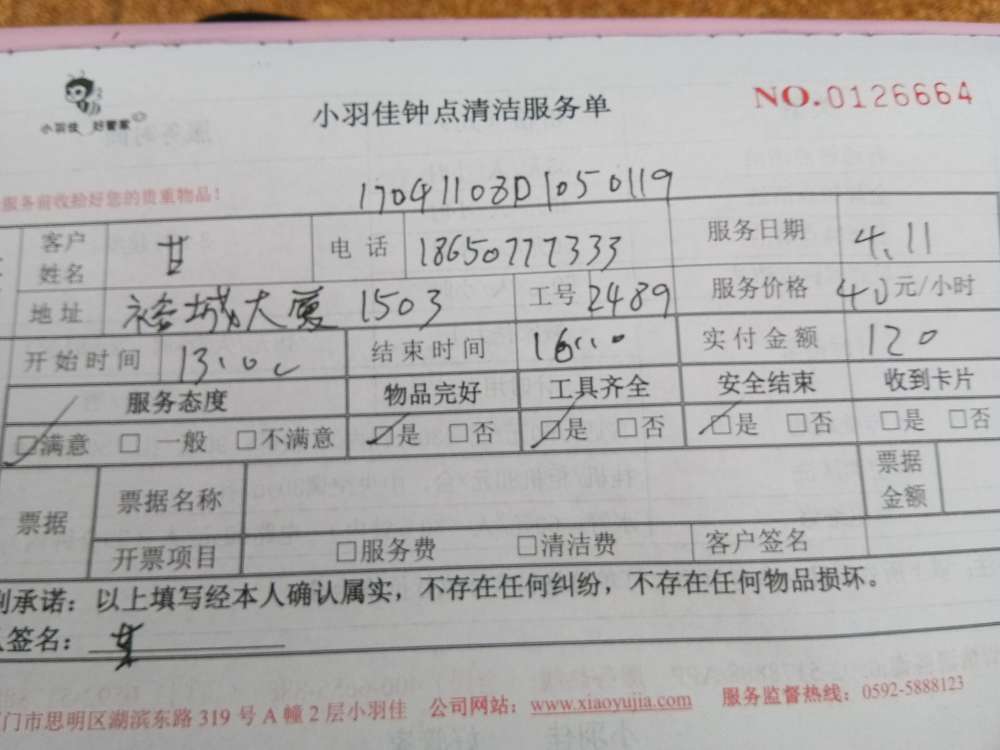 小羽佳 好管家
小羽佳钟点清洁服务单
NO.0126664
服务前收拾好您的贵重物品!
17041108D1050119
客户姓名 甘 电话 18650777333 服务日期 4.11
地址 裕城大厦 1503 工号 2489 服务价格 40元/小时
开始时间 13:00 结束时间 16:00 实付金额 120
服务态度 物品完好 工具齐全 安全结束 收到卡片
☑满意 □ 一般 □不满意 ☑是 □否 ☑是 □否 ☑是 □否 □是 □否
票据 票据名称 票据金额
开票项目 □服务费 □清洁费 客户签名
承诺：以上填写经本人确认属实，不存在任何纠纷，不存在任何物品损坏。
签名：甘
门市思明区湖滨东路 319 号 A 幢 2 层小羽佳 公司网站：www.xiaoyujia.com 服务监督热线：0592-5888123